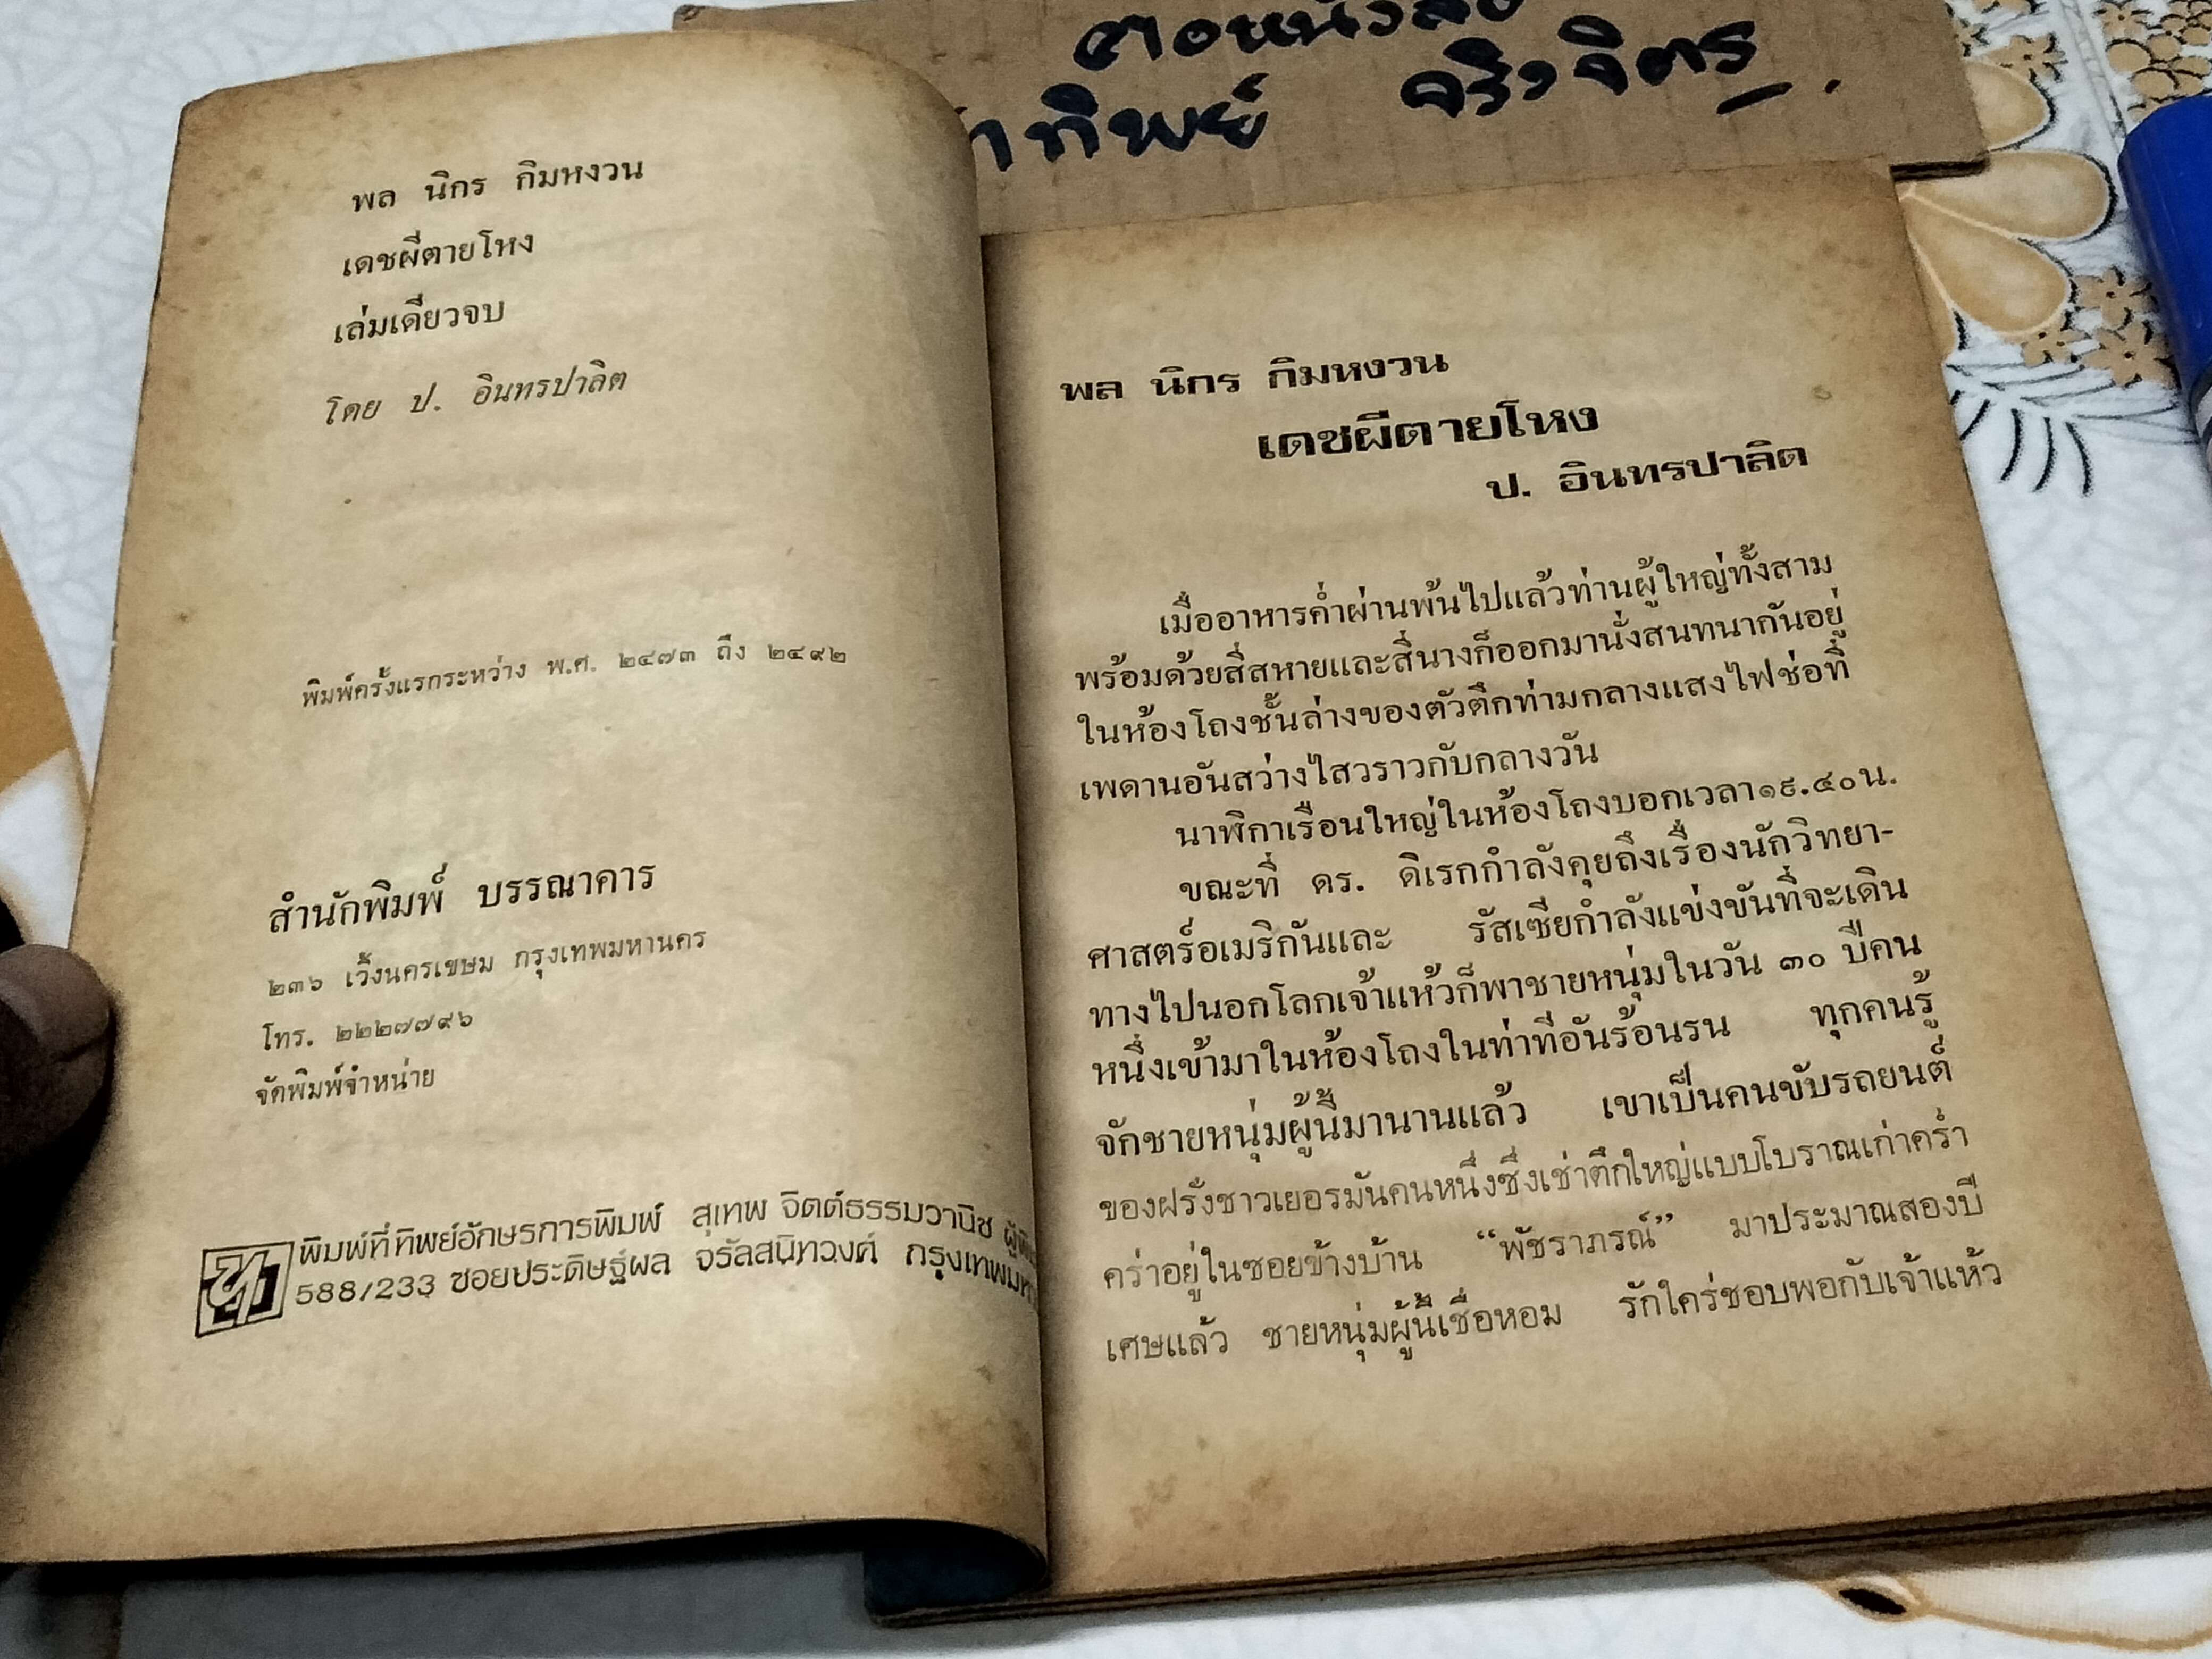 ทิพย์ จริงจิตร
พล นิกร กิมหงวน
เดชผีตายโหง
เล่มเดียวจบ
โดย ป. อินทรปาลิต
พิมพ์ครั้งแรกระหว่าง พ.ศ. ๒๔๗๓ ถึง ๒๔๙๒
สำนักพิมพ์ บรรณาคาร
๒๓๖ เวิ้งนครเขษม กรุงเทพมหานคร
โทร. ๒๒๒๗๗๙๖
จัดพิมพ์จำหน่าย
พิมพ์ที่ทิพย์อักษรการพิมพ์ สุเทพ จิตต์ธรรมวานิช
588/233 ซอยประดิษฐ์ผล จรัลสนิทวงศ์
พล นิกร กิมหงวน
เดชผีตายโหง
ป. อินทรปาลิต
เมื่ออาหารค่ำผ่านพ้นไปแล้วท่านผู้ใหญ่ทั้งสาม
พร้อมด้วยสี่สหายและสี่นางก็ออกมานั่งสนทนากันอยู่
ในห้องโถงชั้นล่างของตัวตึกท่ามกลางแสงไฟช่อที่
เพดานอันสว่างไสวราวกับกลางวัน
นาฬิกาเรือนใหญ่ในห้องโถงบอกเวลา๑๙.๔๐น.
ขณะที่ ดร. ดิเรกกำลังคุยถึงเรื่องนักวิทยา-
ศาสตร์อเมริกันและ รัสเซียกำลังแข่งขันที่จะเดิน
ทางไปนอกโลกเจ้าแห้วก็พาชายหนุ่มในวัน ๓๐ ปีคน
หนึ่งเข้ามาในห้องโถงในท่าทีอันร้อนรน ทุกคนรู้
จักชายหนุ่มผู้นี้มานานแล้ว เขาเป็นคนขับรถยนต์
ของฝรั่งชาวเยอรมันคนหนึ่งซึ่งเช่าตึกใหญ่แบบโบราณเก่าคร่ำ
คร่าอยู่ในซอยข้างบ้าน “พัชราภรณ์” มาประมาณสองปี
เศษแล้ว ชายหนุ่มผู้นี้เชื่อหอม รักใคร่ชอบพอกับเจ้าแห้ว